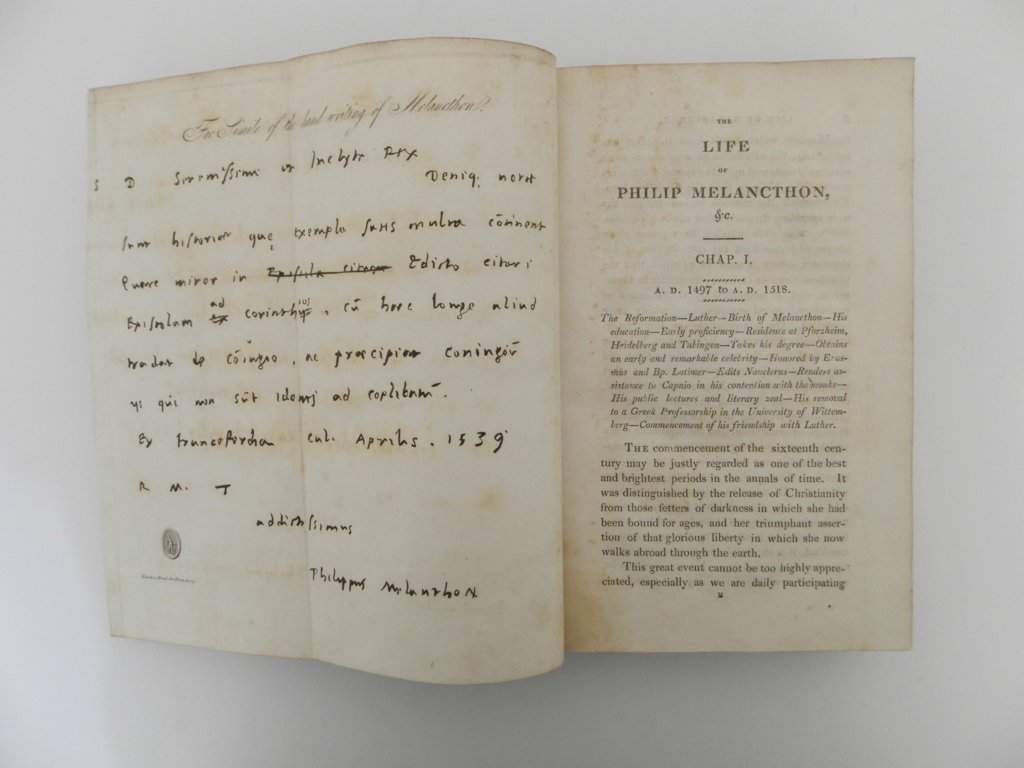 Fac Simile of the hand writing of Melancthon.
S D Serenissime et Inclyte Rex
Deniq; norat
sunt historiae que exempla satis multa cōtinent
Quare miror in Epistola citatur Edicto citari
Epistolam ex ad corinthios, cū haec longe aliud
tradat de cōiugio, ac praecipiat coniugiū
ys qui non sūt idonej ad coelibatū.
Ex francofordia cal. Aprilis. 1539
R M. T
addictissimus
Philippus Melanthon
THE
LIFE
OF
PHILIP MELANCTHON,
&c.
CHAP. I.
A. D. 1497 to A. D. 1518.
The Reformation—Luther—Birth of Melancthon—His
education—Early proficiency—Residence at Pforzheim,
Heidelberg and Tubingen—Takes his degree—Obtains
an early and remarkable celebrity—Honored by Eras-
mus and Bp. Latimer—Edits Nauclerus—Renders as-
sistance to Capnio in his contention with the monks—
His public lectures and literary zeal—His removal
to a Greek Professorship in the University of Wittem-
berg—Commencement of his friendship with Luther.
THE commencement of the sixteenth cen-
tury may be justly regarded as one of the best
and brightest periods in the annals of time. It
was distinguished by the release of Christianity
from those fetters of darkness in which she had
been bound for ages, and her triumphant asser-
tion of that glorious liberty in which she now
walks abroad through the earth.
This great event cannot be too highly appre-
ciated, especially as we are daily participating
B